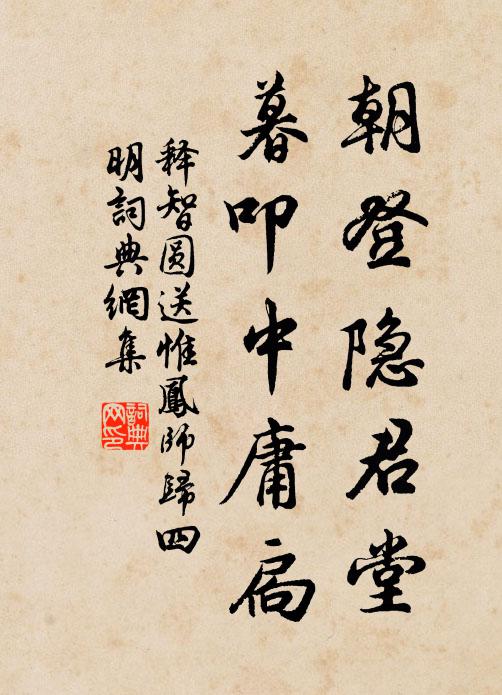 朝登隐君堂
暮叩中庸扃
释智圆送惟鳳师歸四
明詞典網集
詞典
网印